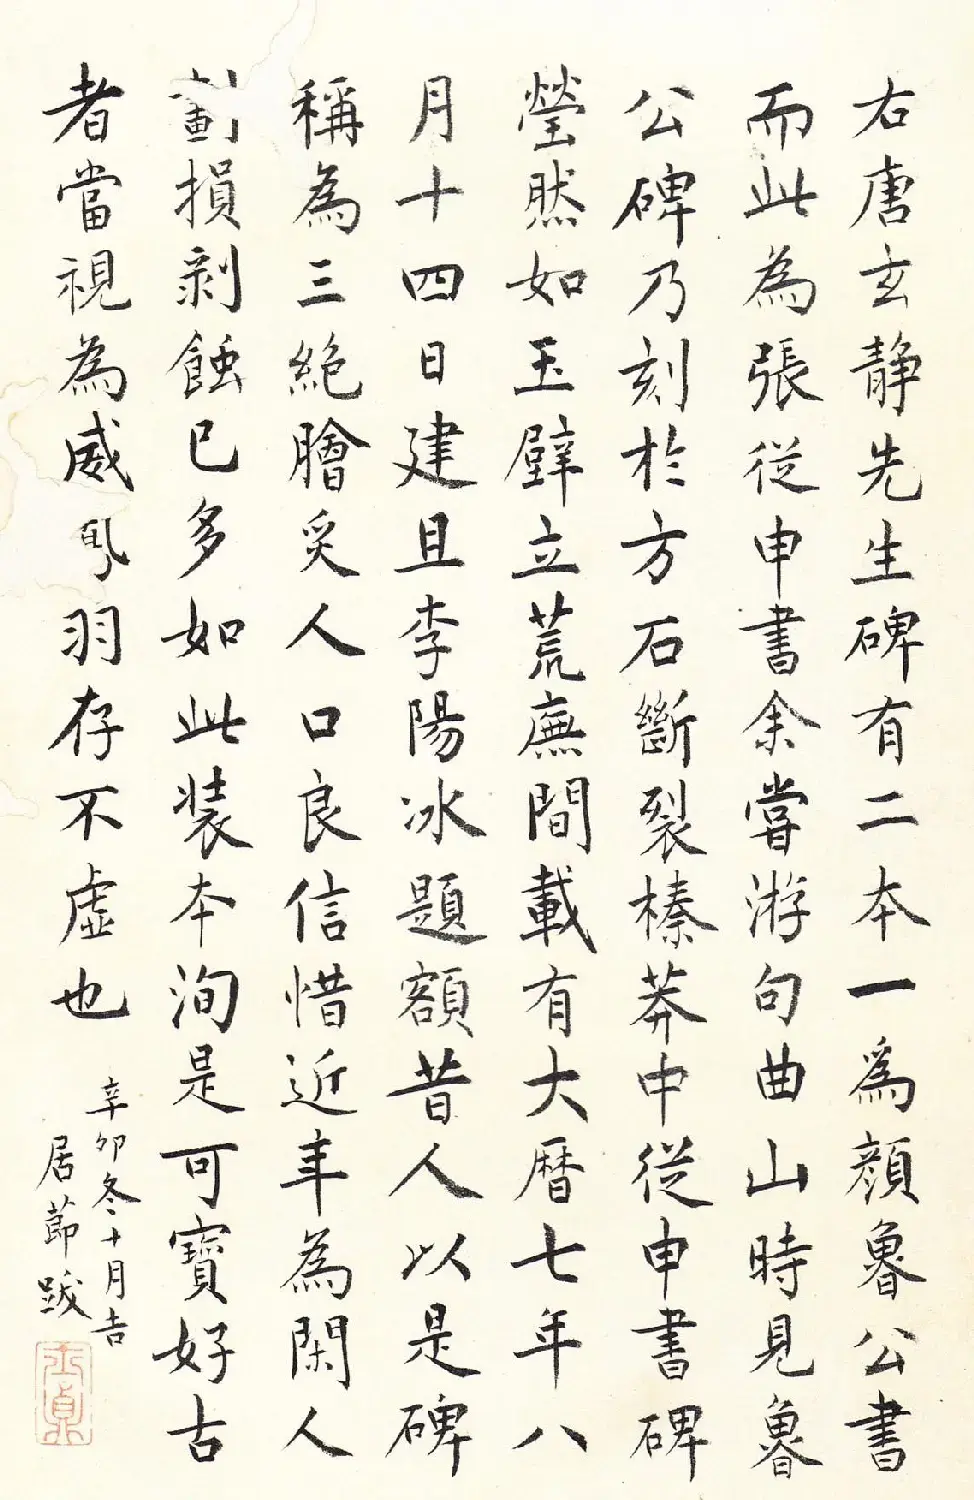 右唐玄静先生碑有二本一爲顔魯公書
而此為張從申書余嘗游句曲山時見魯
公碑乃刻於方石斷裂榛莽中從申書碑
瑩然如玉壁立荒廡間載有大暦七年八
月十四日建且李陽冰題額昔人以是碑
稱為三絶膾炙人口良信惜近年為閑人
劃損剥蝕已多如此装本洵是可寶好古
者當視為威鳳羽存不虛也
辛卯冬十月吉
居節跋
士貞